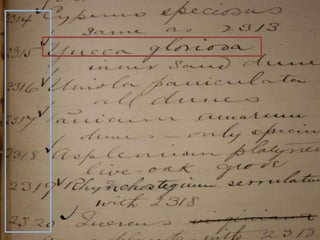 2314 Cyperus speciosus
same as 2313
2315 Yucca gloriosa
inner sand dune
2316 Uniola paniculata
all dunes
2317 Panicum amarum
dunes - only specim
2318 Asplenium platyneu
live-oak grove
2319 Rhynchostegium serrulatum
with 2318
2320 Quercus virginiana
with 2318